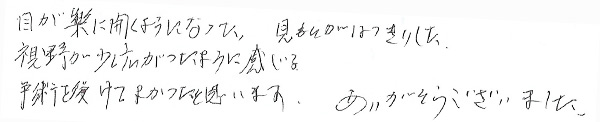 目が楽に開くようになった, 見るのがはっきりした.
視野が少し広がったように感じる
手術を受けてよかったと思います. ありがそうございました.